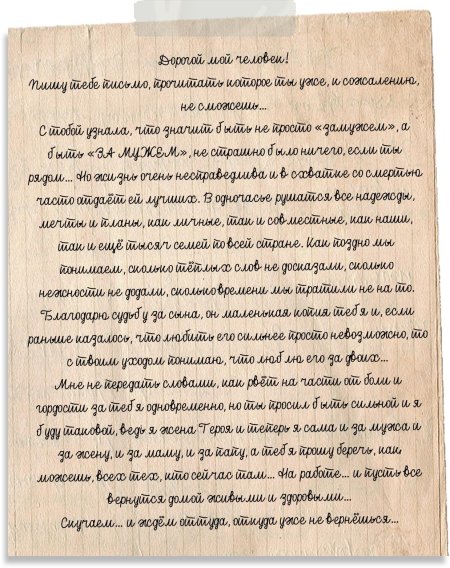 Дорогой мой человек!
Пишу тебе письмо, прочитать которое ты уже, к сожалению,
не сможешь...
С тобой узнала, что значит быть не просто «замужем», а
быть «ЗА МУЖЕМ», не страшно было ничего, если ты
рядом... Но жизнь очень несправедлива и в схватке со смертью
часто отдаёт ей лучших. В одночасье рушатся все надежды,
мечты и планы, как личные, так и совместные, как наши,
так и ещё тысяч семей по всей стране. Как поздно мы
понимаем, сколько тёплых слов не досказали, сколько
нежности не додали, сколько времени мы тратили не на то.
Благодарю судьбу за сына, он маленькая копия тебя и, если
раньше казалось, что любить его сильнее просто невозможно, то
с твоим уходом понимаю, что люблю его за двоих...
Мне не передать словами, как рвёт на части от боли и
гордости за тебя одновременно, но ты просил быть сильной и я
буду таковой, ведь я жена Героя и теперь я сама и за мужа и
за жену, и за маму, и за папу, а тебя прошу беречь, как
можешь, всех тех, кто сейчас там... На работе... и пусть все
вернутся домой живыми и здоровыми...
Скучаем... и ждём оттуда, откуда уже не вернёшься...